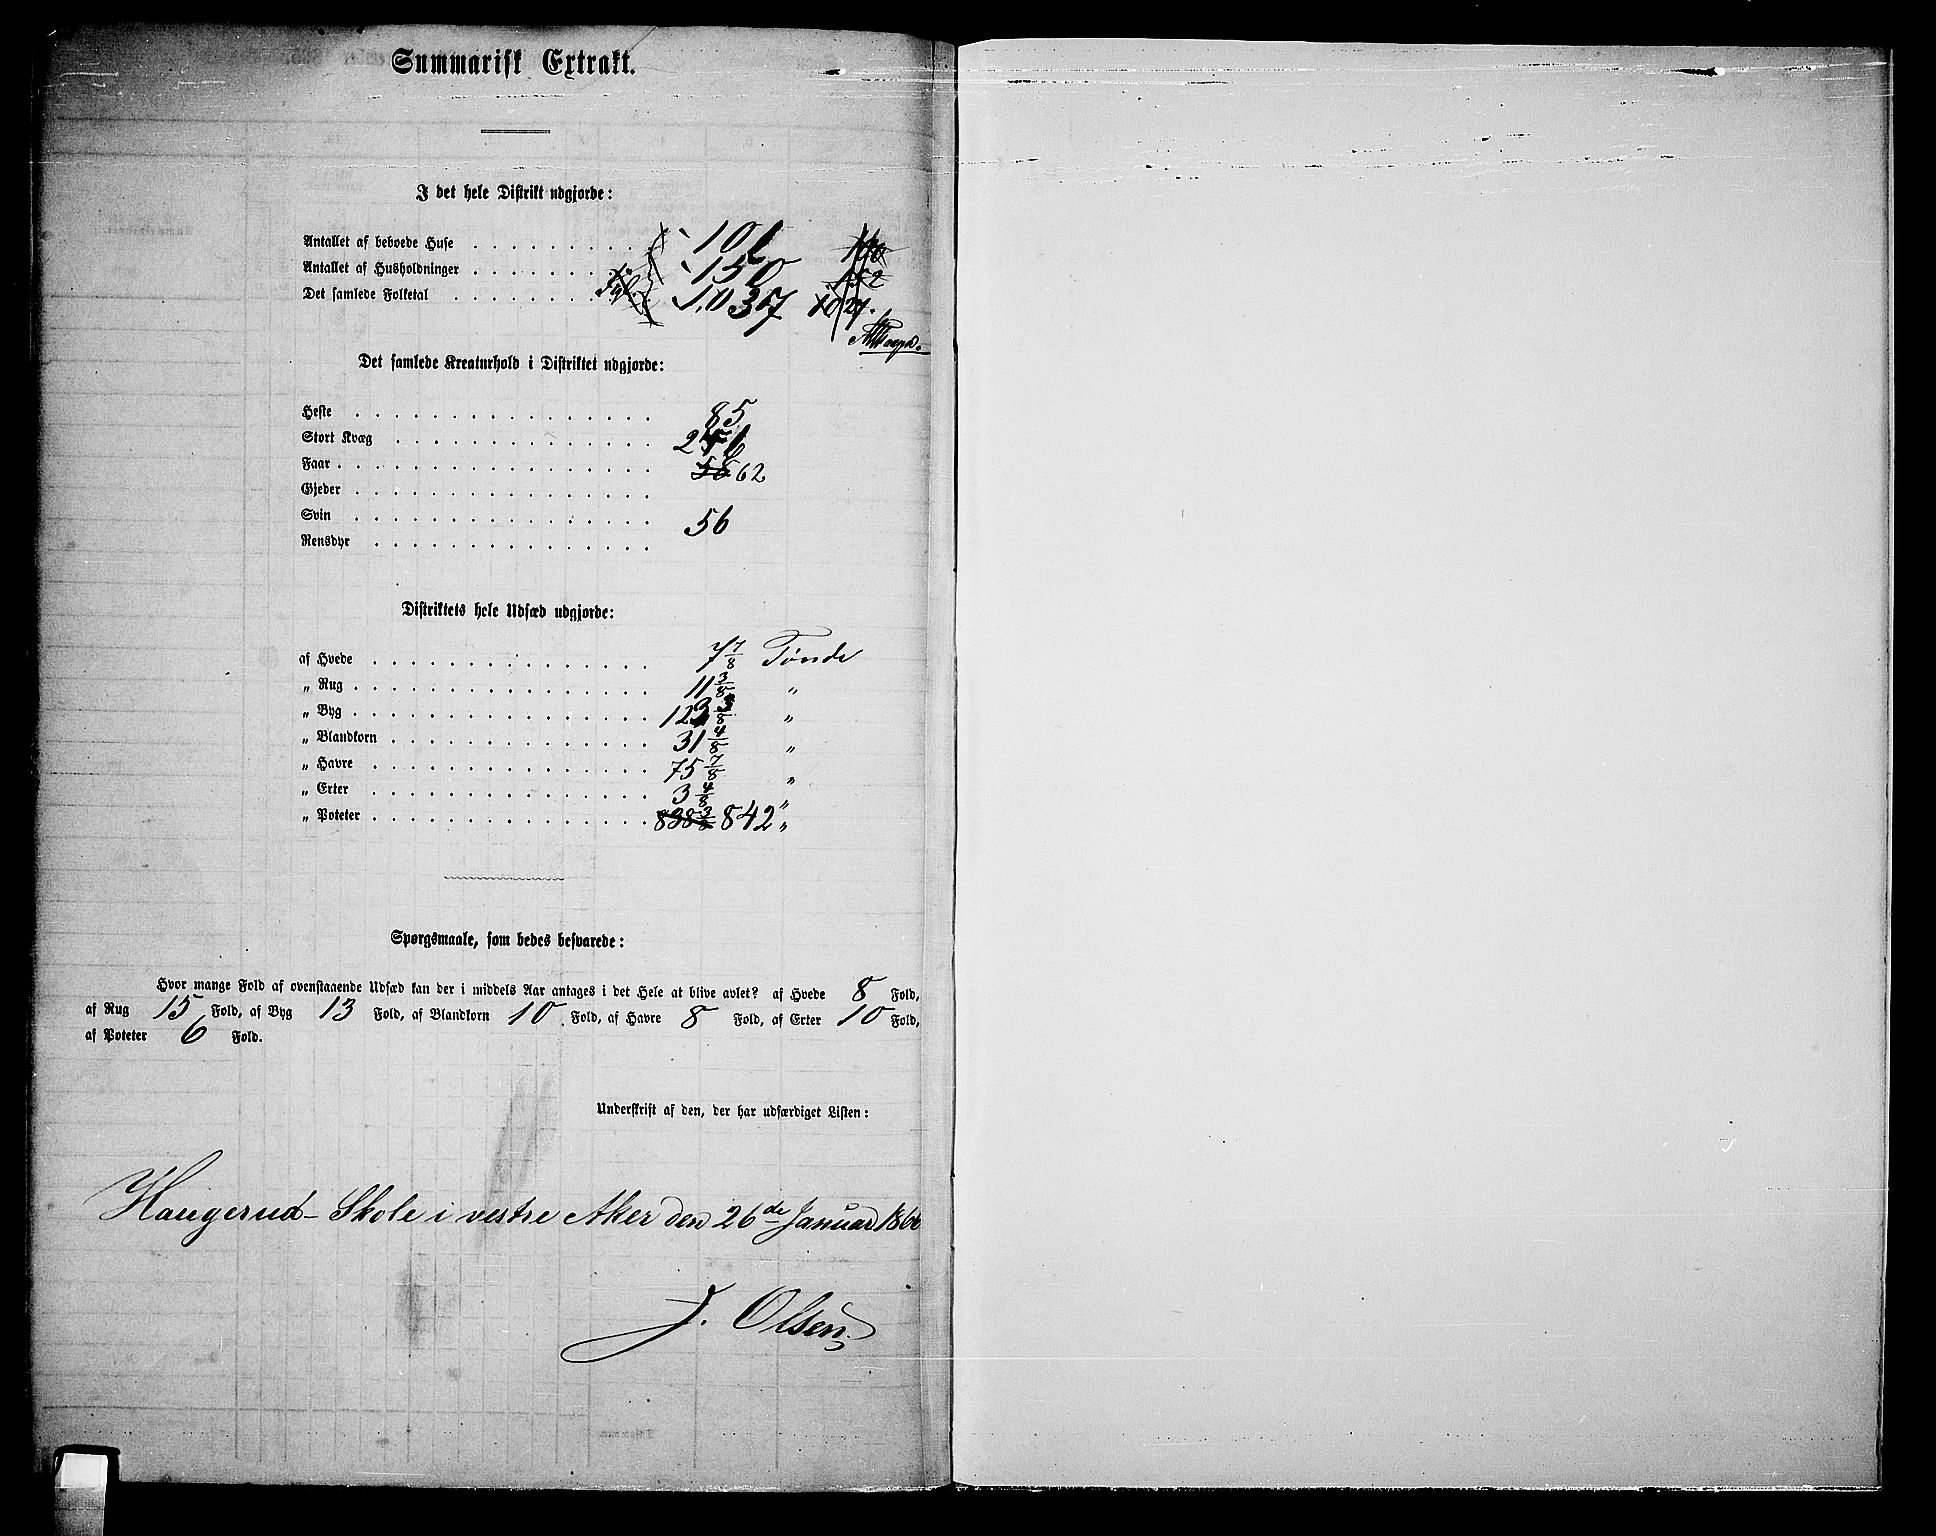 Summarisk Extrakt.
I det hele Distrikt udgjorde:
Antallet af beboede Huse . . . . . . . . . 101
Antallet af Husholdninger . . . . . . . . 150 152
Det samlede Folketal . . . . . . . . 1.037 1027.
Det samlede Kreaturhold i Distriktet udgjorde:
Heste . . . . . . . . . . . . . . . . 85
Stort Kvæg . . . . . . . . . . . . . .
Faar . . . . . . . . . . . . . . . . . 58 62
Gjeder . . . . . . . . . . . . . . . .
Svin . . . . . . . . . . . . . . . . 56
Rensdyr . . . . . . . . . . . . . . .
Distriktets hele Udsæd udgjorde:
af Hvede . . . . . . . . . . . . . . . 7 7/8 Tönde
„ Rug . . . . . . . . . . . . . . . . 11 3/8 „
„ Byg . . . . . . . . . . . . . . . . 123 3/8 „
„ Blandkorn . . . . . . . . . . . . . . 31 4/8 „
„ Havre . . . . . . . . . . . . . . . 75 7/8 „
„ Erter . . . . . . . . . . . . . . . 3 4/8 „
„ Poteter . . . . . . . . . . . . . . . 838 3/8 842 „
Spørgsmaale, som bedes besvarede:
Hvor mange Fold af ovenstaaende Udsæd kan der i middels Aar antages i det Hele at blive avlet? af Hvede 8 Fold,
af Rug 15 Fold, af Byg 13 Fold, af Blandkorn 10 Fold, af Havre 8 Fold, af Erter 10 Fold,
af Poteter 6 Fold.
Underskrift af den, der har udfærdiget Listen:
Haugerud- Skole i vestre Aker den 26de Januar 1866
J. Olsen.